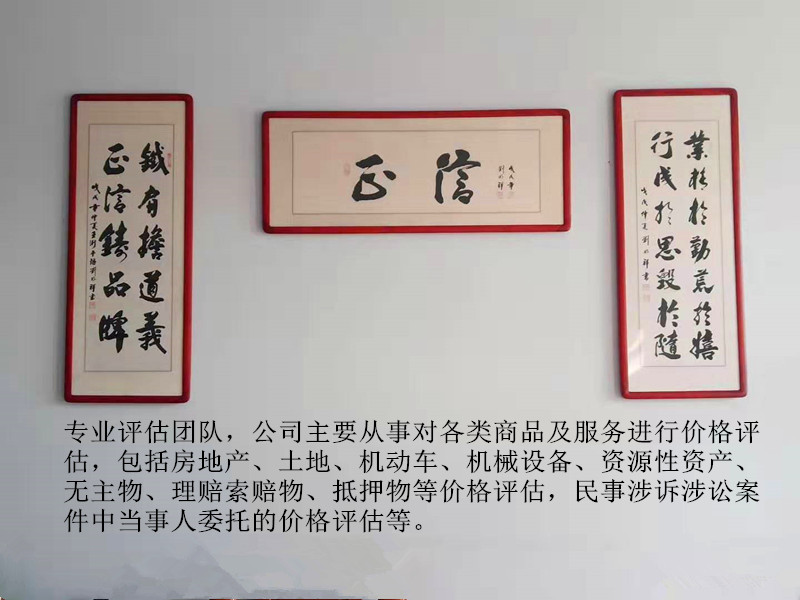 鐵肩擔道義
正信鑄品牌
正信
戊戌年
業精於勤荒於嬉
行成於思毀於隨
专业评估团队，公司主要从事对各类商品及服务进行价格评
估，包括房地产、土地、机动车、机械设备、资源性资产、
无主物、理赔索赔物、抵押物等价格评估，民事涉诉涉讼案
件中当事人委托的价格评估等。